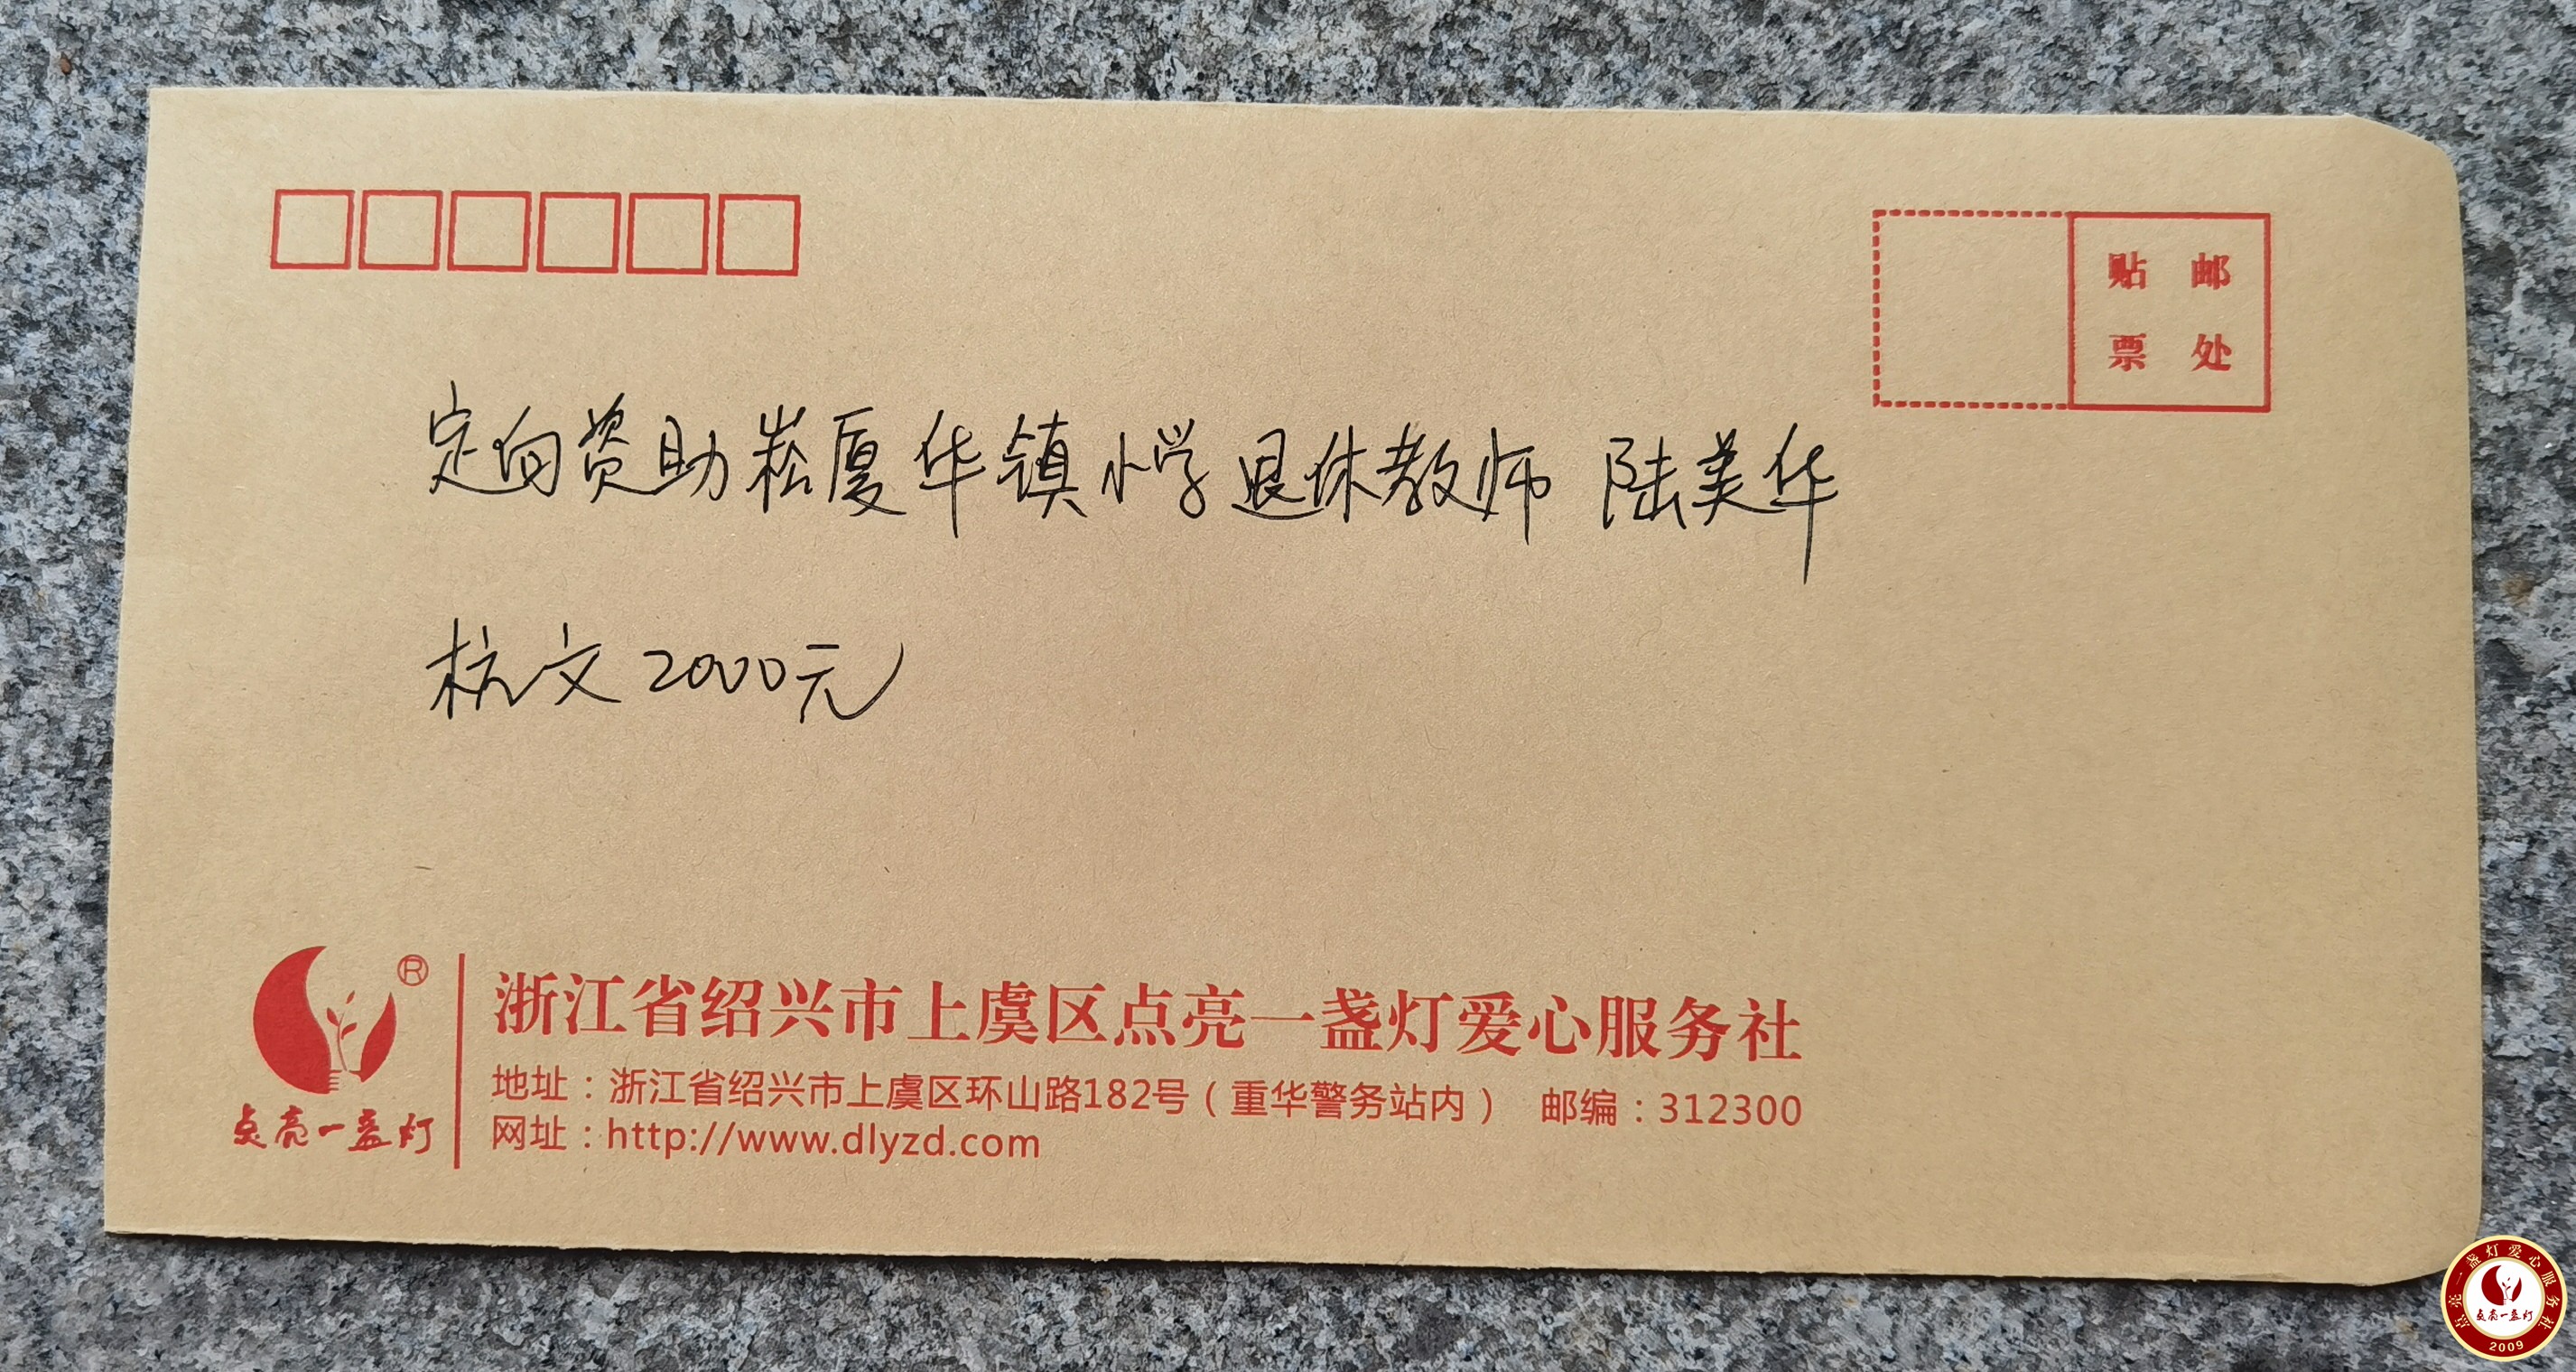 贴 邮
票 处
定向资助崧厦华镇小学退休教师 陆美华
杭文2000元
®
点亮一盏灯
浙江省绍兴市上虞区点亮一盏灯爱心服务社
地址：浙江省绍兴市上虞区环山路182号（重华警务站内） 邮编：312300
网址：http://www.dlyzd.com
点亮一盏灯爱心服务社
点亮一盏灯
2009